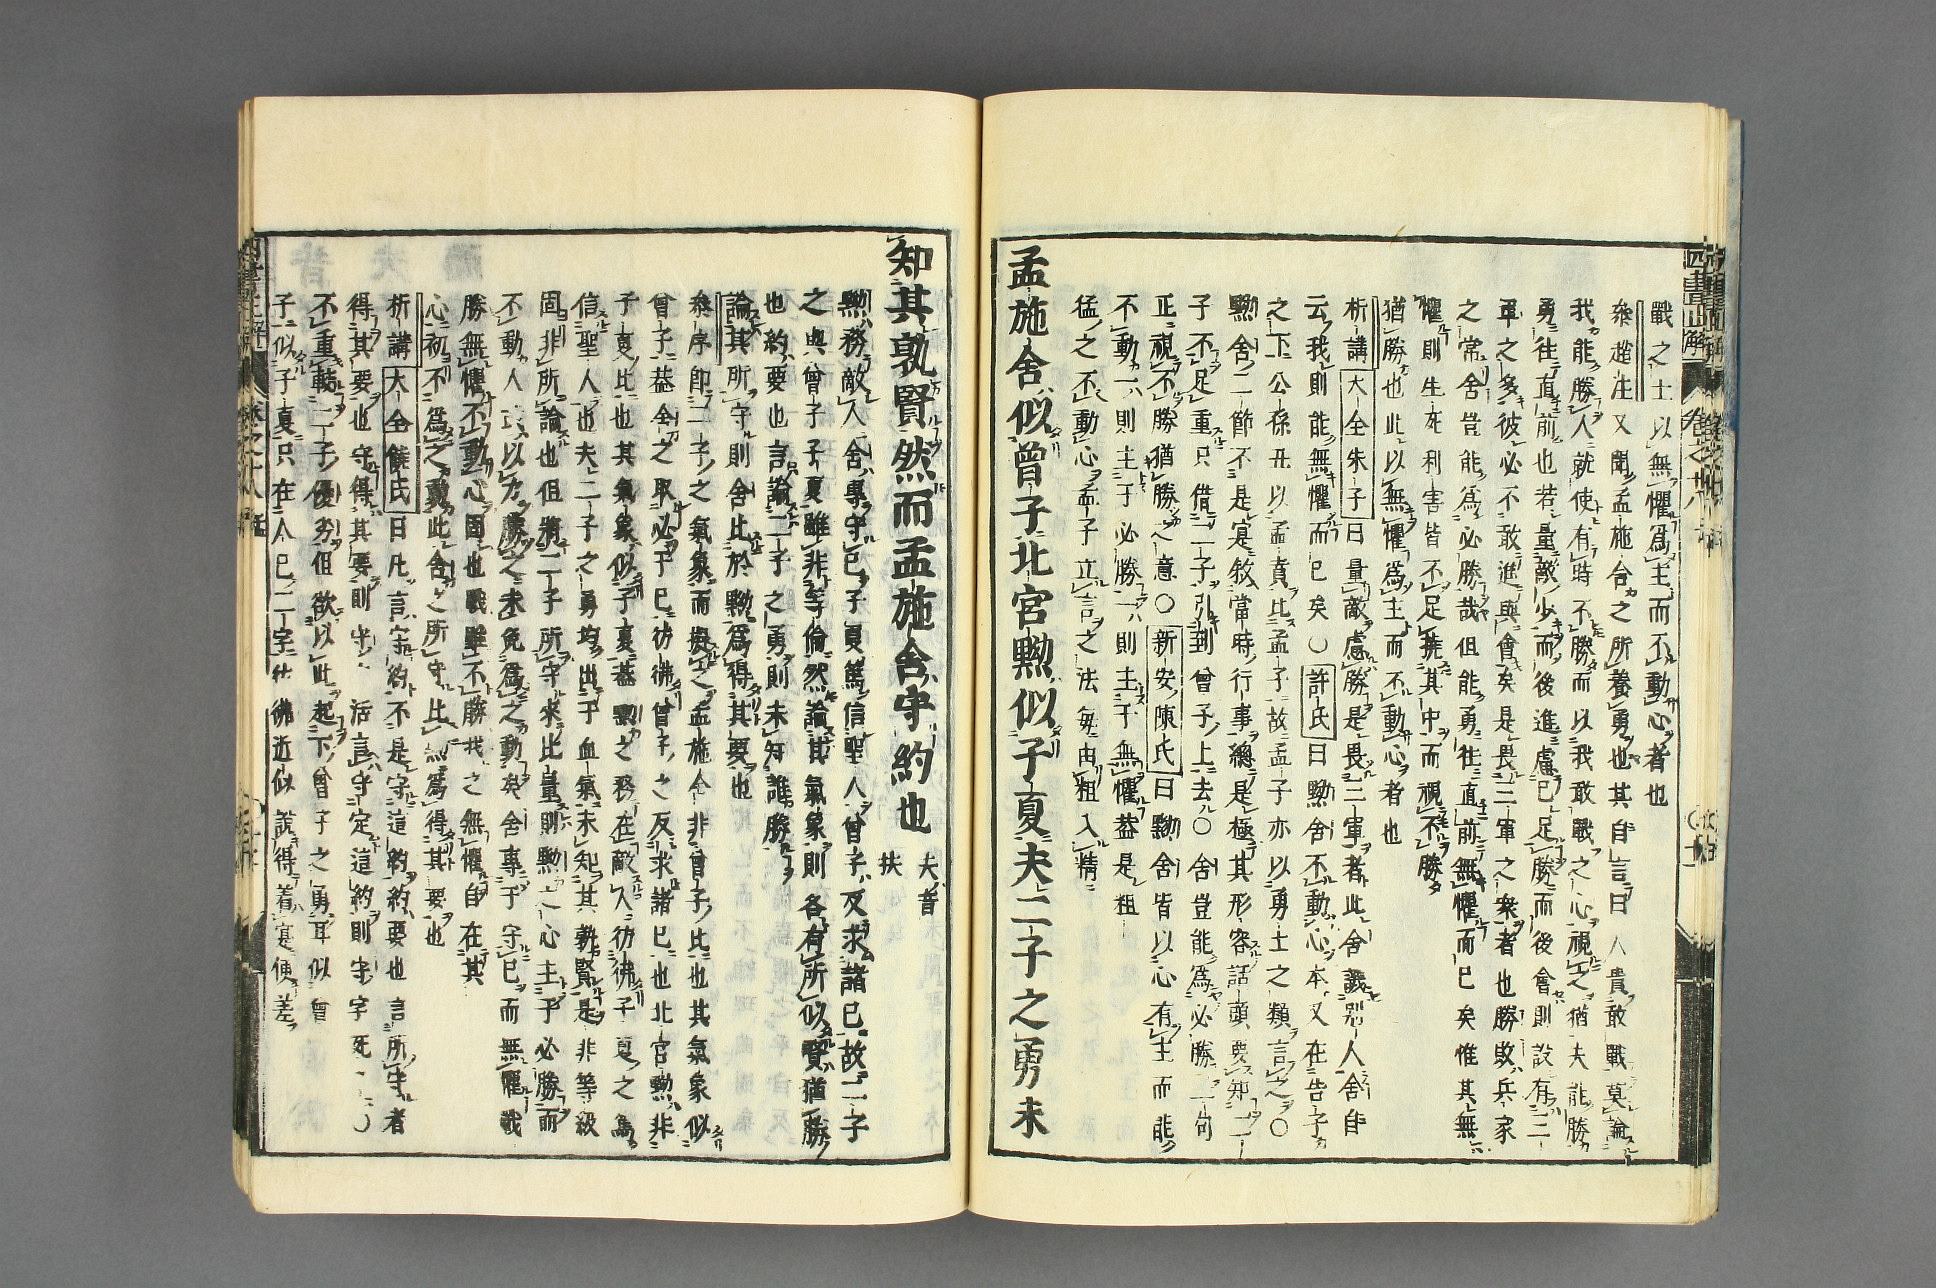 戰之士以無懼爲主而不動心者也
叅趙注又聞孟施舍之所養勇也其自言曰人貴敢戰莫論
我能勝人就使有時不勝而以我敢戰之心視之猶夫能勝
勇往直前也若量敵少而後進慮已足勝而後會則設有三
軍之多彼必不敢進與會矣是畏三軍之衆者也勝敗兵家
之常舍豈能爲必勝哉但能勇往直前無懼而已矣惟其無
懼則生死利害皆不足擾其中而視不勝
猶勝也此以無懼爲主而不動心者也
析講大全朱子曰量敵慮勝是畏三軍者此舍譏別人舍自
云我則能無懼而已矣○許氏曰黝舍不動心本又在告子
之下公孫丑以孟賁比孟子故孟子亦以勇士之類言之○
黝舍二節不是寔敘當時行事總是極其形容話頭要知二
子不足重只借二子引到曾子上去○舍豈能爲必勝二句
正視不勝猶勝之意○新安陳氏曰黝舍皆以心有主而能
不動一則主于必勝一則主于無懼葢是粗
猛之不動心孟子立言之法每由粗入精
孟施舍似曾子北宮黝似子夏夫二子之勇未
知其孰賢然而孟施舍守約也 夫音扶
黝務敵人舍專守已子夏篤信聖人曾子反求諸已故二子
之與曾子子夏雖非等倫然論其氣象則各有所似賢猶勝
也約要也言論二子之勇則未知誰勝
論其所守則舍比於黝爲得其要也
叅序即二子之氣象而擬之孟施舍非曾子比也其氣象似
曾子葢舍之取必于已彷彿曾子之反求諸已也北宮黝非
子夏比也其氣象似子夏葢黝之務在敵人彷彿子夏之篤
信聖人也夫二子之勇均出于血氣未知其孰賢是非等級
固非所論也但將二子所守來比量則黝之心主于必勝而
不動人或以力勝之未免爲之動矣舍專于守已而無懼我
勝無懼不動心固也戰雖不勝我之無懼自在其
心初不爲之動此舍之所守比黝爲得其要也
析講大全饒氏曰凡言守約不是守這約約要也言所守者
得其要也守得其要則守 活言守定這約則守字死 ○
不重較二子優劣但欲以此起下曾子之勇耳似曾
子似子夏只在人已二字 彿近似說得着寔便差